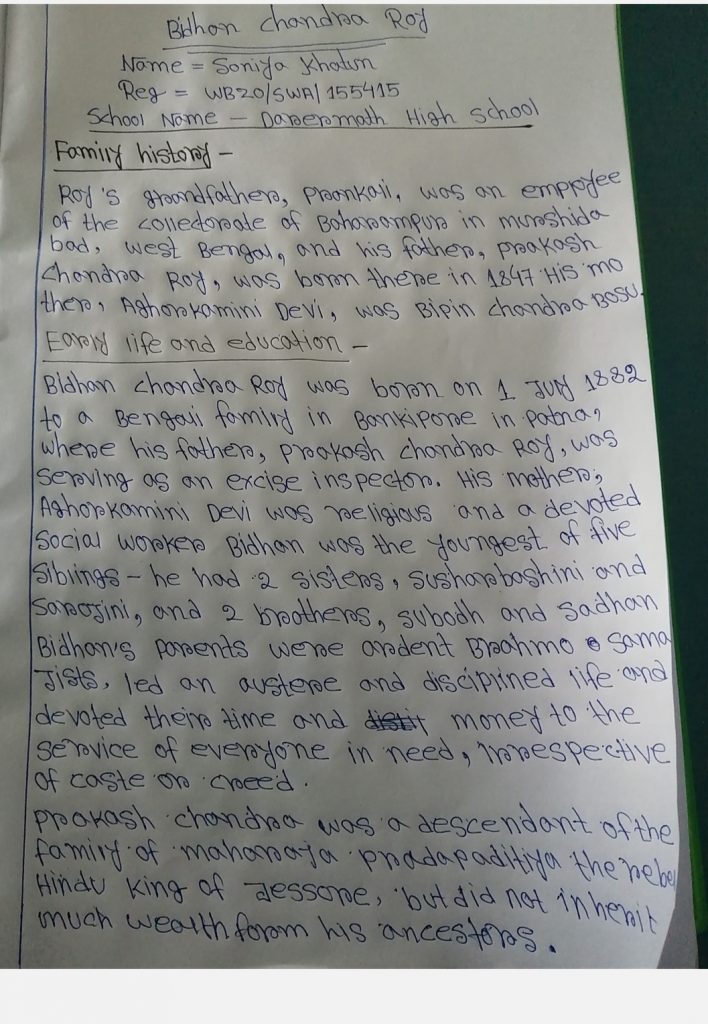 Bidhan chandra Roy
Name = Soniya Khatun
Reg = WB20/SWA/155415
School Name - Daperpmath High School
Family history -
Roy's grandfather, Prankali, was an employee
of the colledorate of Baharampur in murshida
bad, west Bengal, and his father, prakash
Chandra Roy, was born there in 1847 His mo
ther, Aghorkamini Devi, was Bipin chandra Bosu.
Early life and education -
Bidhan chandra Roy was born on 1 July 1882
to a Bengali family in Bankipore in patna,
where his father, prakash chandra Roy, was
serving as an excise inspector. His mother,
Aghorkamini Devi was religious and a devoted
Social worker Bidhan was the youngest of five
Siblings - he had 2 sisters, susharbashini and
Sarojini, and 2 brothers, subodh and sadhan
Bidhan's parents were ardent Brahmo sama
Jists, led an austere and disciplined life and
devoted their time and money to the
service of everyone in need, irrespective
of caste or creed.
prakash chandra was a descendant of the
family of maharaja pradapaditiya the rebel
Hindu king of Jessore, but did not inherit
much wealth foram his ancestors.